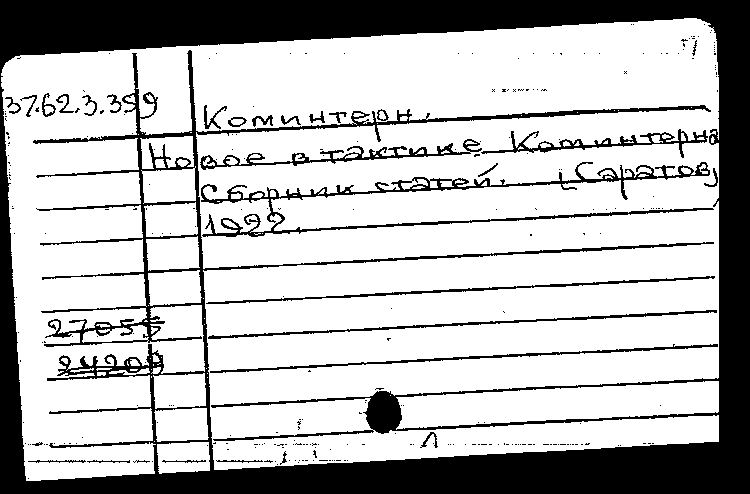 37.62.3.359
Коминтерн.
Новое в тактике Коминтерна
Сборник статей. [Саратов,
1922.
27055
24209